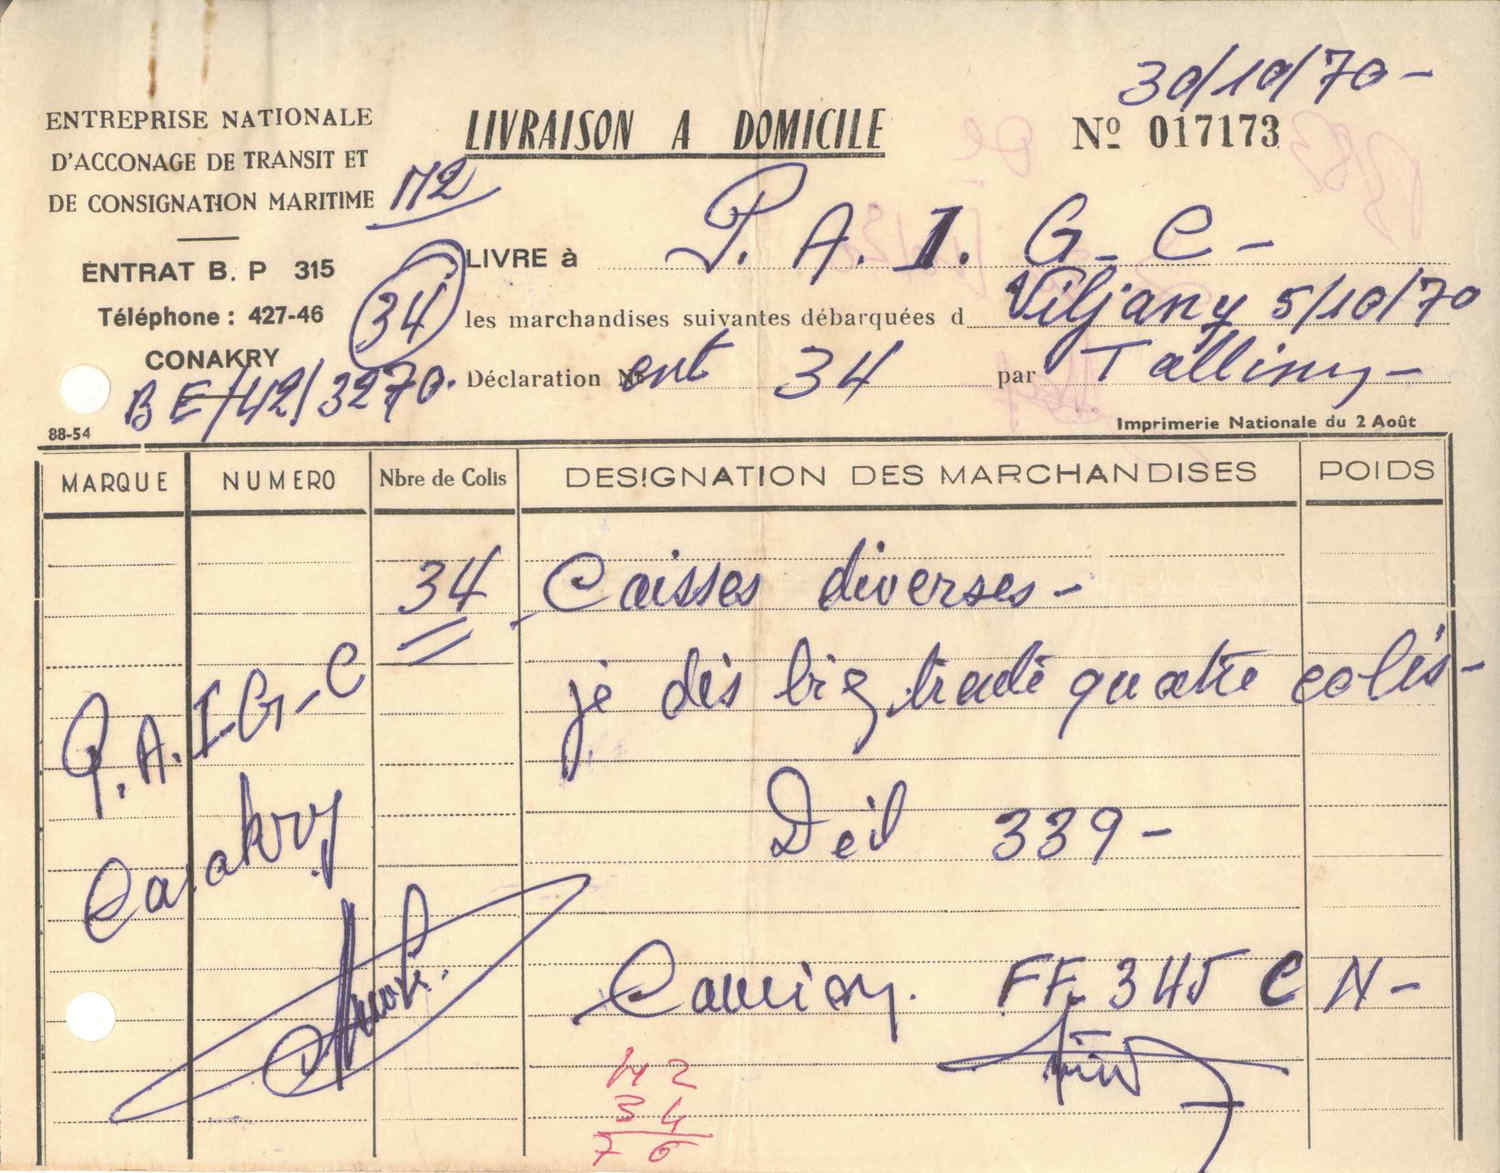 30/10/70-
ENTREPRISE NATIONALE
D'ACCONAGE DE TRANSIT ET
DE CONSIGNATION MARITIME
LIVRAISON A DOMICILE
Nº 017173
ENTRAT B. P 315
Téléphone : 427-46
CONAKRY
BE/42/3270.
88-54
34
LIVRE à P. A. I. G. C -
les marchandises suivantes débarquées d Viljany 5/10/70
Déclaration Nº ent 34 par Tallinn -
Imprimerie Nationale du 2 Août
MARQUE NUMERO Nbre de Colis DESIGNATION DES MARCHANDISES POIDS
34 Caisses diverses -
P.A.I-G-C
Conakry
je dis trente quatre colis-
Dél 339-
Camion. FF. 345 C N-
42
34
76